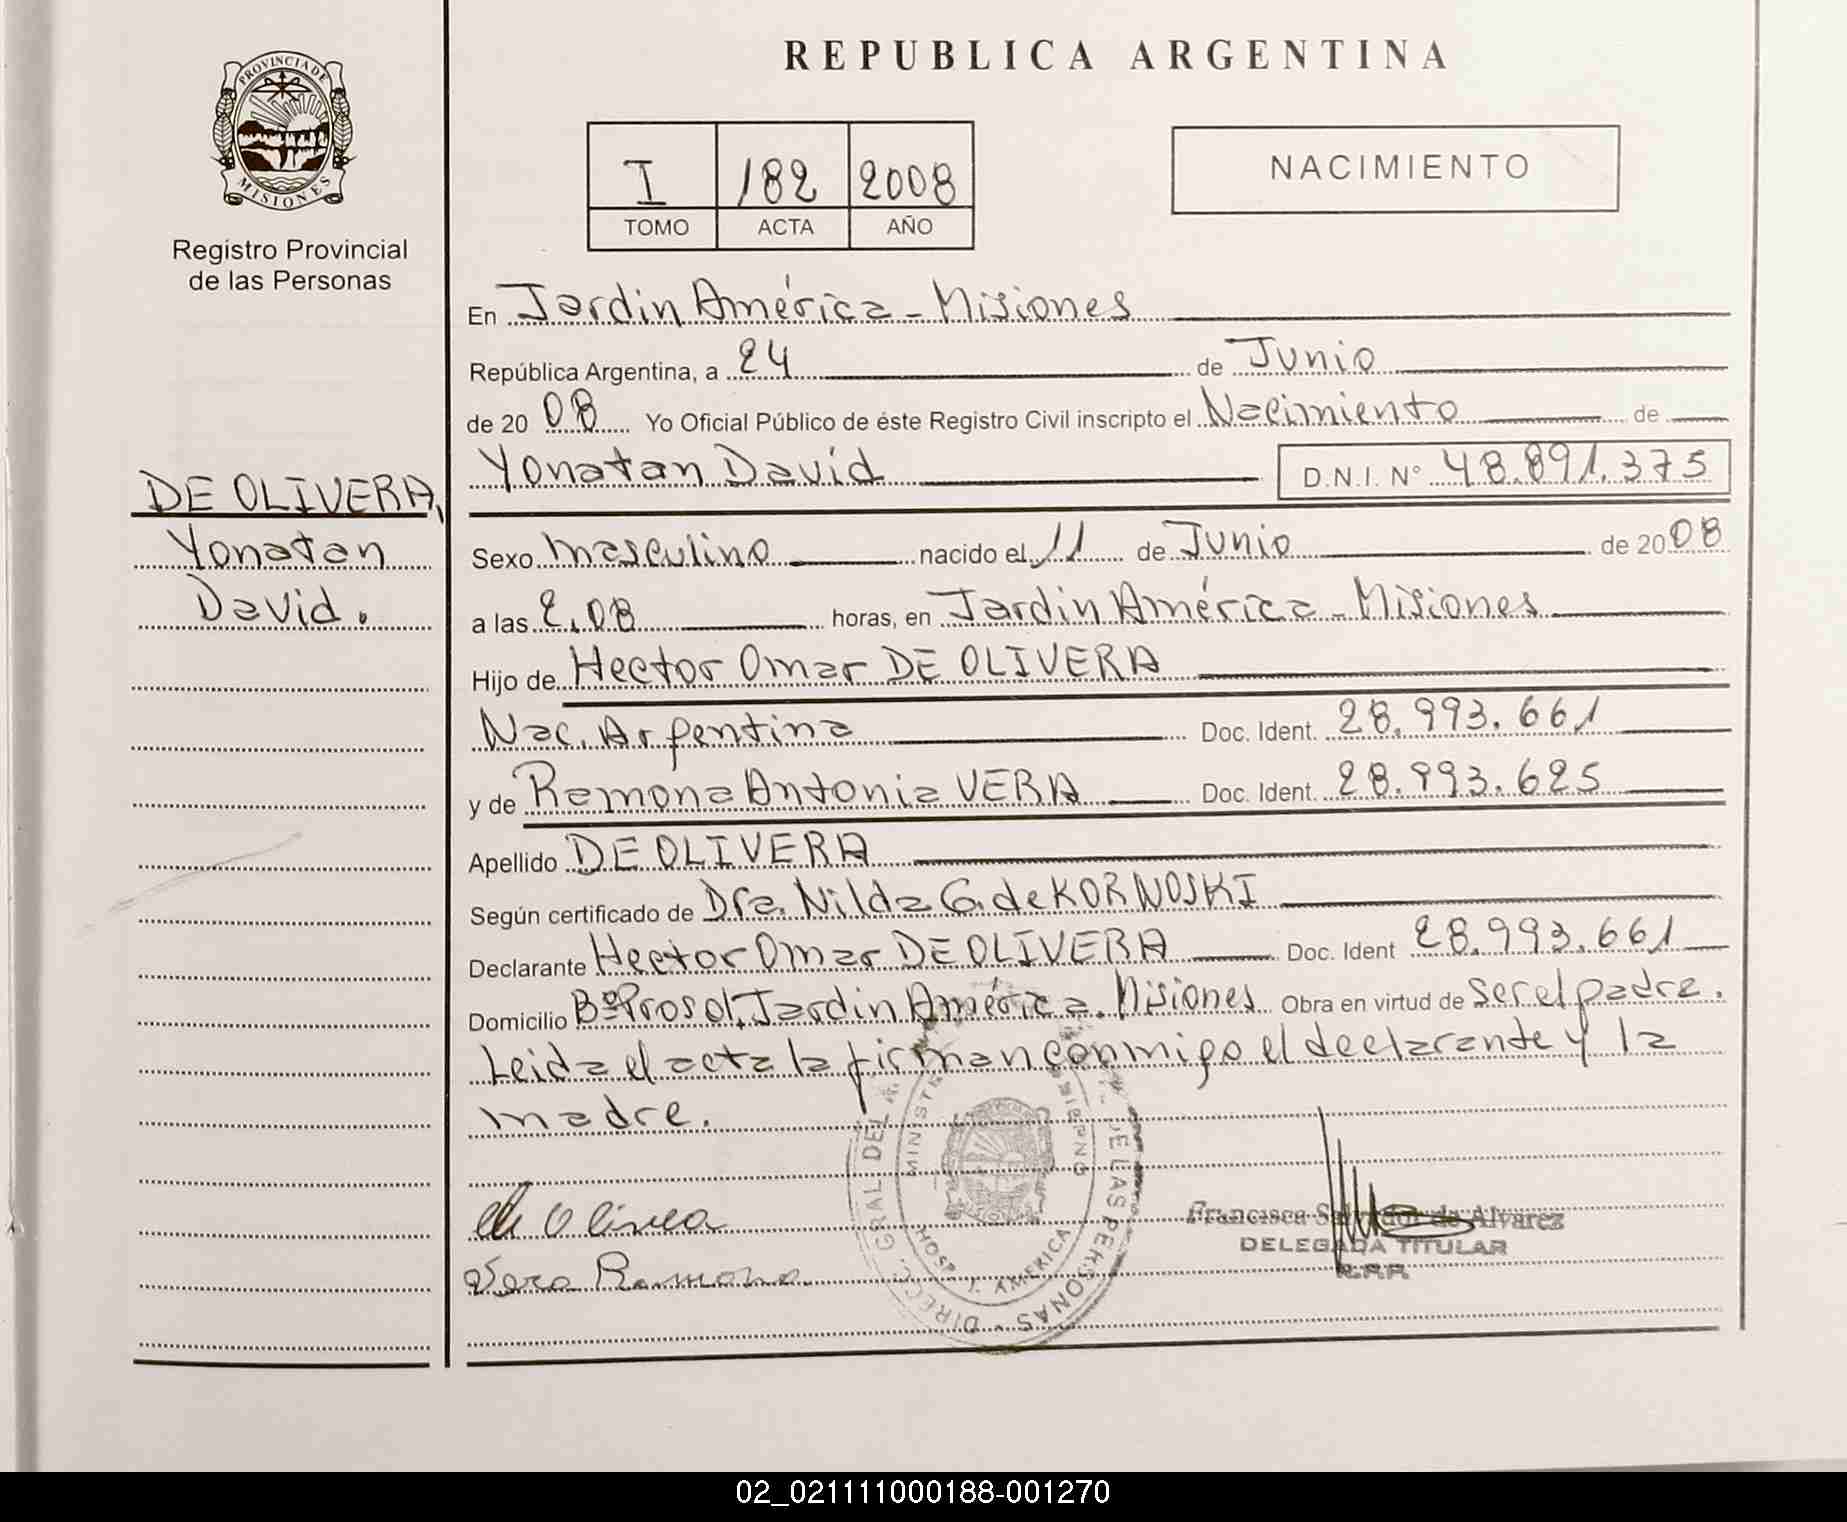 REPUBLICA ARGENTINA
PROVINCIA DE
MISIONES
Registro Provincial
de las Personas
I 182 2008
TOMO ACTA AÑO
NACIMIENTO
DE OLIVERA,
Yonatan
David.
En Jardin América - Misiones
República Argentina, a 24 de Junio
de 2008 Yo Oficial Público de éste Registro Civil inscripto el Nacimiento de
Yonatan David D.N.I. N° 48.891.375
Sexo masculino nacido el 11 de Junio de 2008
a las 2,08 horas, en Jardin América - Misiones
Hijo de Hector Omar DE OLIVERA
Nac. Argentina Doc. Ident. 28.993.661
y de Ramona Antonia VERA Doc. Ident. 28.993.625
Apellido DE OLIVERA
Según certificado de Dra. Nilda G. de KORNOSKI
Declarante Hector Omar DE OLIVERA Doc. Ident 28.993.661
Domicilio Bº Prosol, Jardin América. Misiones Obra en virtud de ser el padre.
Leida el acta la firman conmigo el declarante y la
madre.
Vera Ramona
Francisca Salvador de Alvarez
DELEGADA TITULAR
R.P.P.
HOSP. J. AMERICA
02_021111000188-001270